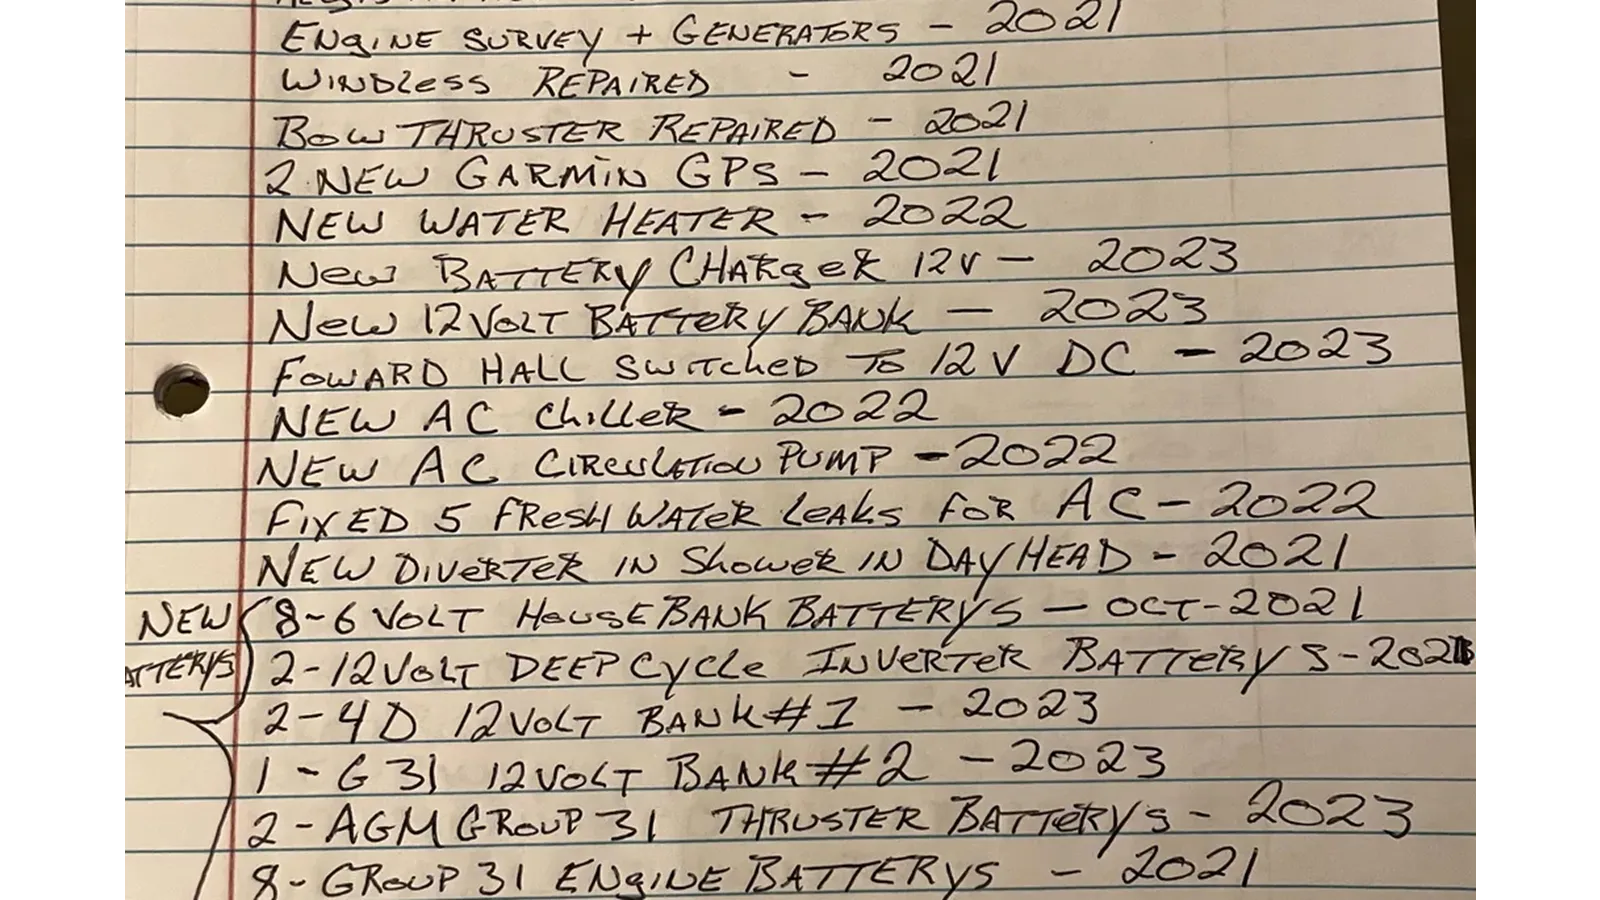 ENGINE SURVEY + GENERATORS - 2021
WINDLESS REPAIRED - 2021
BOW THRUSTER REPAIRED - 2021
2 NEW GARMIN GPS - 2021
NEW WATER HEATER - 2022
New BATTERY CHARgER 12V - 2023
New 12 VOLT BATTERY BANK - 2023
FOWARD HALL SWITCHED TO 12 V DC - 2023
NEW AC ChilleR - 2022
NEW AC CIRCULATION PUMP - 2022
FIXED 5 FRESH WATER LEAKS FOR AC - 2022
NEW DIVERTER IN SHOWER IN DAY HEAD - 2021
NEW 8-6 VOLT HOUSE BANK BATTERYS - OCT-2021
2-12 VOLT DEEP CYCLE INVERTER BATTERYS - 2021
2-4D 12 VOLT BANK #1 - 2023
1-G31 12 VOLT BANK #2 - 2023
2-AGM GROUP 31 THRUSTER BATTERYS - 2023
8-GROUP 31 ENGINE BATTERYS - 2021